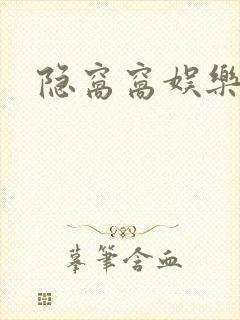 隐窝窝娱樂
摹筆含血